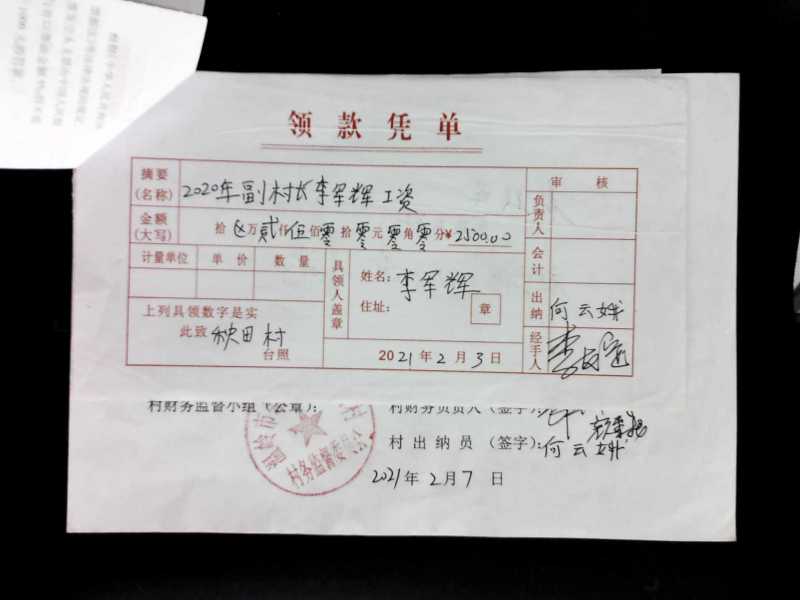 领款凭单
摘要 (名称) 2020年副村长李军辉工资
金额 (大写) 拾 万 贰 仟 伍 佰 零 拾 零 元 零 角 零 分 ¥ 2500.00
计量单位 单价 数量
具领人盖章
姓名: 李军辉
住址:
章
上列具领数字是实
此致 秋田村
台照
2021年2月3日
审核
负责人
会计
出纳 何云娥
经手人
村财务监督小组(公章):
村财务负责人(签字):
村出纳员(签字): 何云娥
村务监督委员会
2021年2月7日